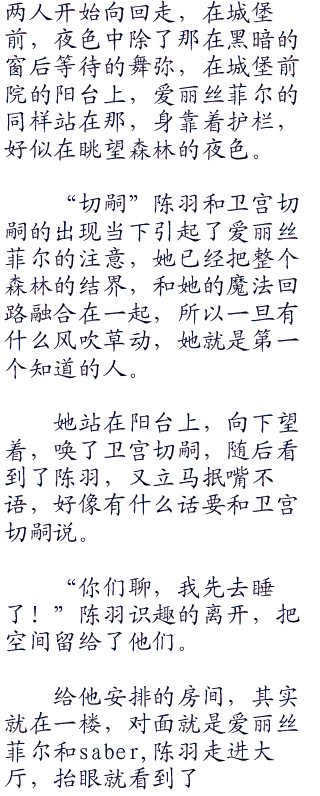 两人开始向回走，在城堡
前，夜色中除了那在黑暗的
窗后等待的舞弥，在城堡前
院的阳台上，爱丽丝菲尔的
同样站在那，身靠着护栏，
好似在眺望森林的夜色。
“切嗣”陈羽和卫宫切
嗣的出现当下引起了爱丽丝
菲尔的注意，她已经把整个
森林的结界，和她的魔法回
路融合在一起，所以一旦有
什么风吹草动，她就是第一
个知道的人。
她站在阳台上，向下望
着，唤了卫宫切嗣，随后看
到了陈羽，又立马抿嘴不
语，好像有什么话要和卫宫
切嗣说。
“你们聊，我先去睡
了！”陈羽识趣的离开，把
空间留给了他们。
给他安排的房间，其实
就在一楼，对面就是爱丽丝
菲尔和saber,陈羽走进大
厅，抬眼就看到了